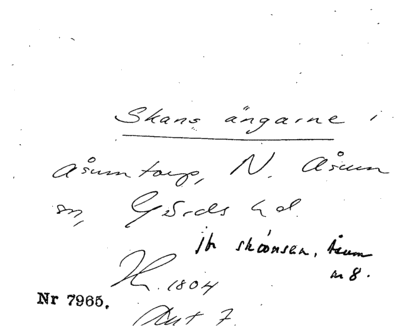 Skans ängarne i
Åsumtorp, N. Åsum
sn, Gärds hd.
jfr skansen, Åsum
n 8.
H. 1804
Akt 7
Nr 7965.